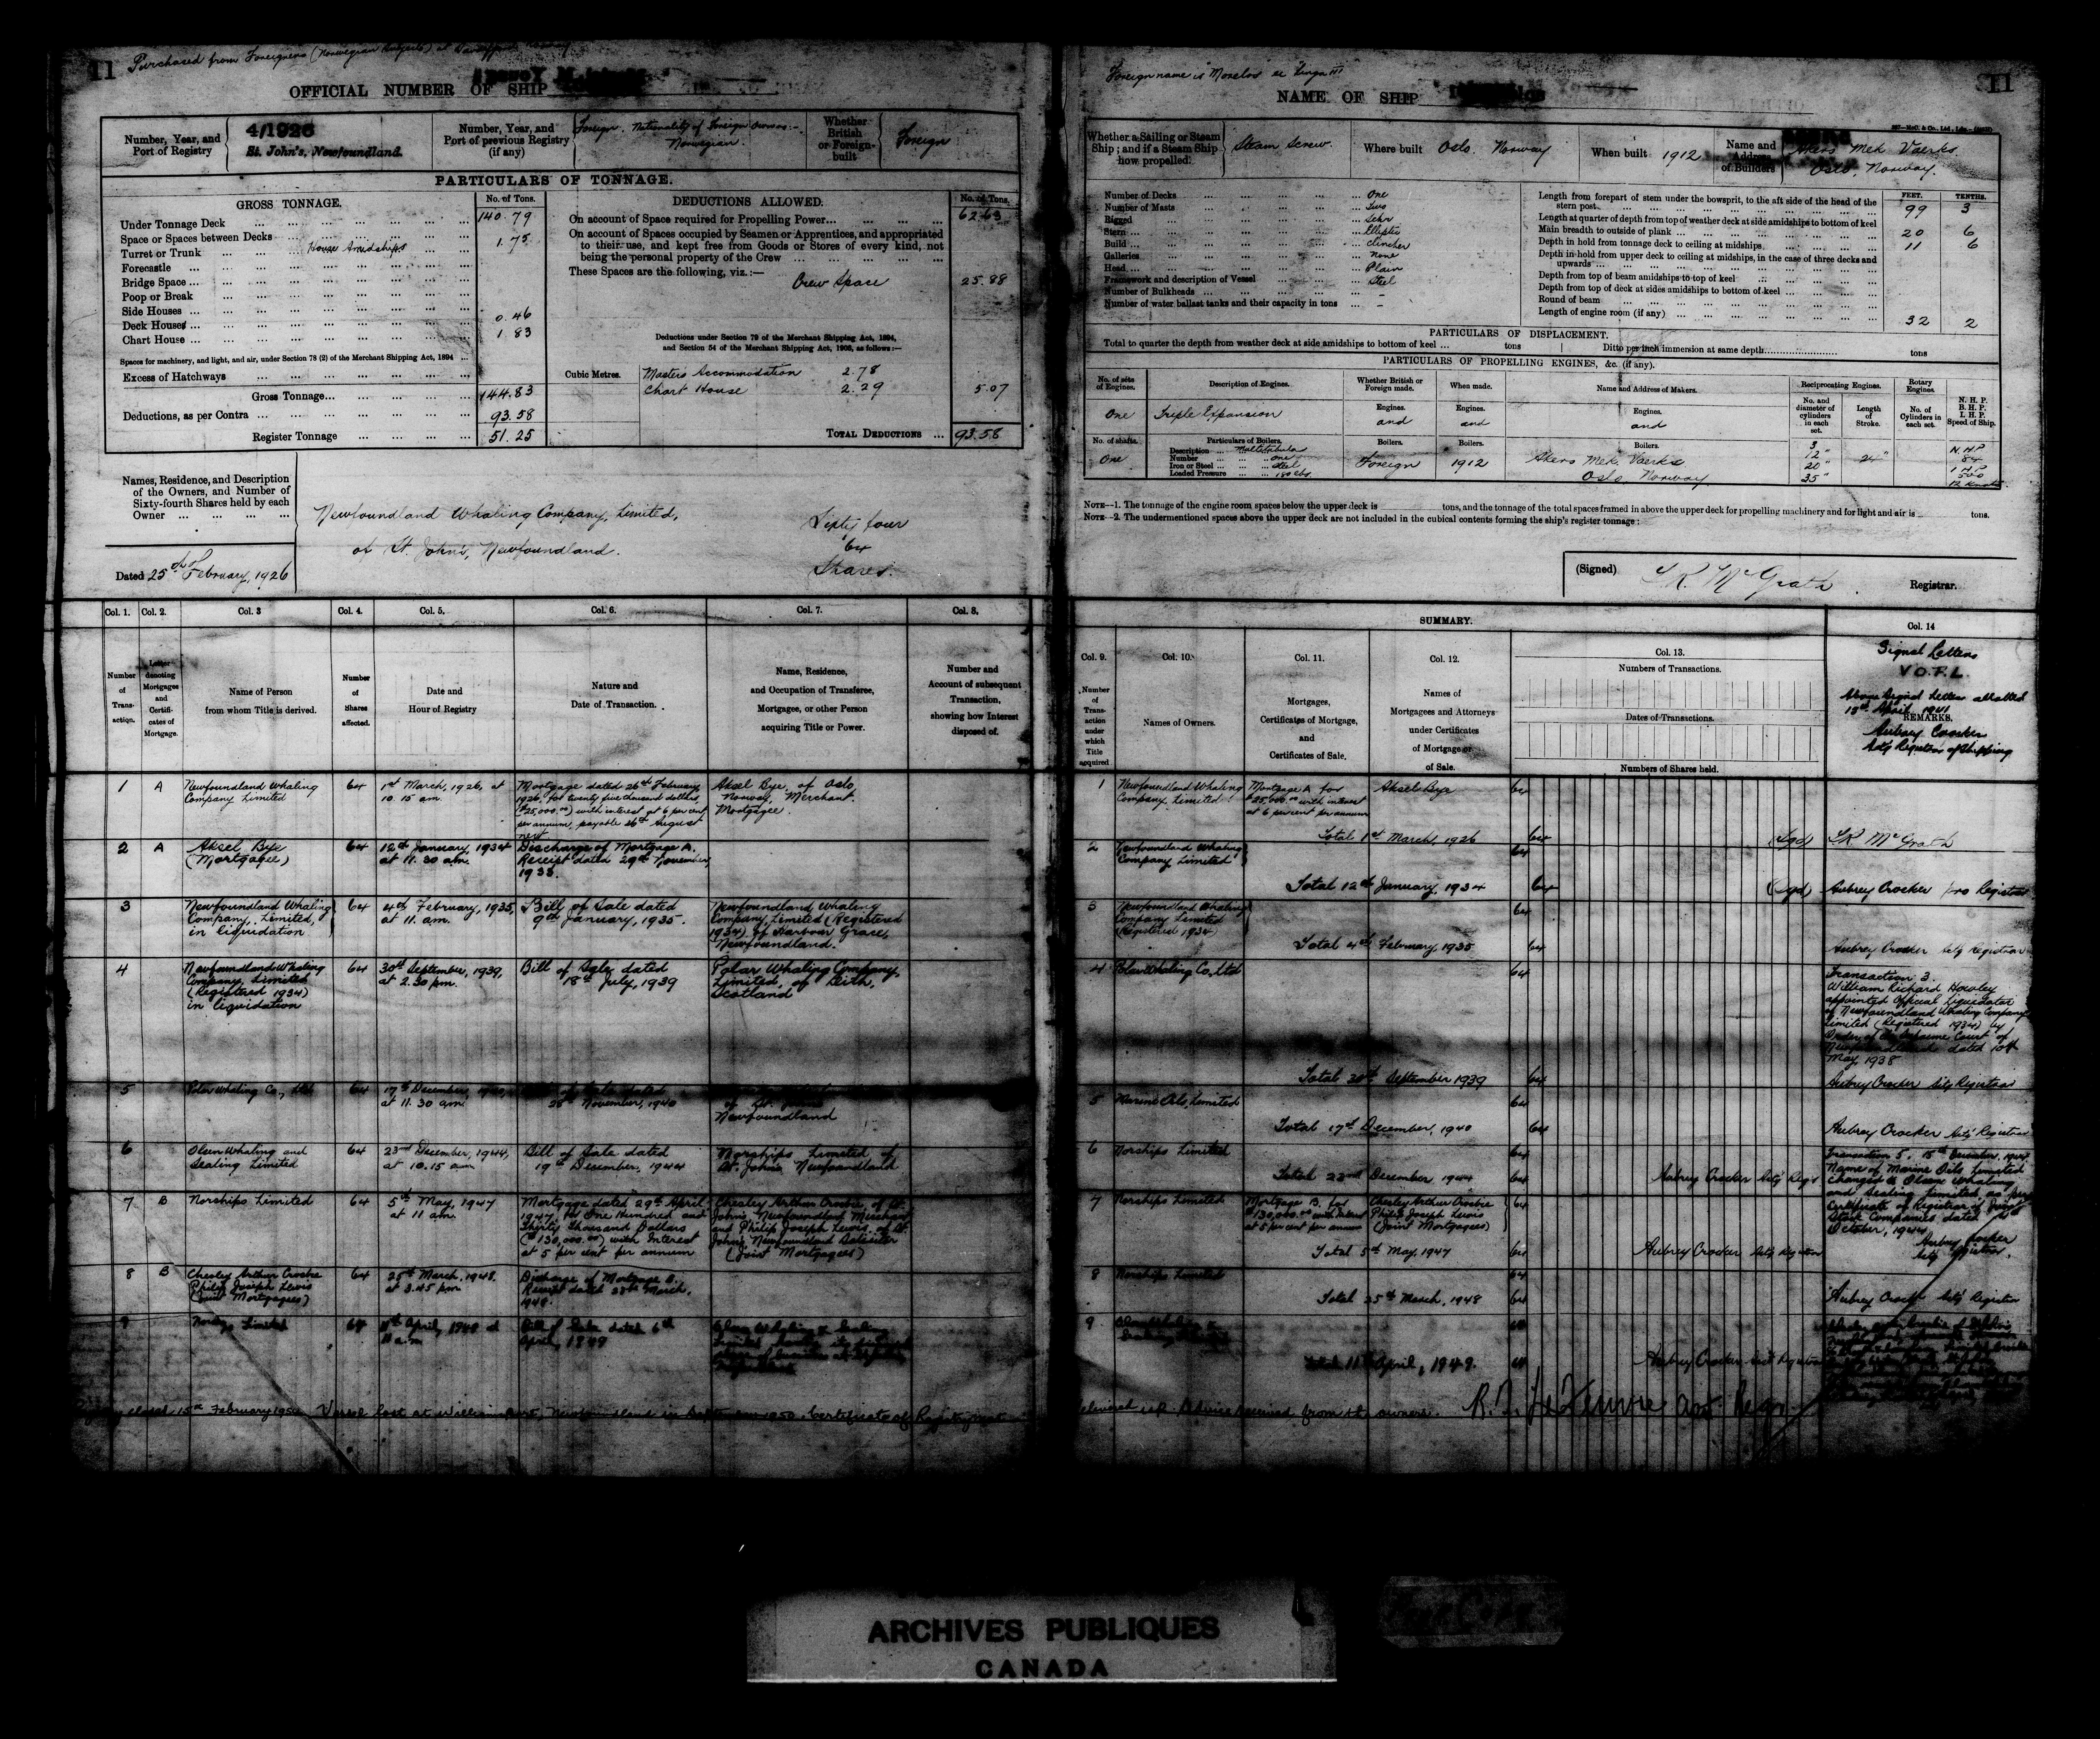 11
Purchased from Foreigners (Norwegian Subjects) at
OFFICIAL NUMBER OF SHIP
Number, Year, and
Port of Registry
4/1926
St. John's, Newfoundland.
Number, Year, and
Port of previous Registry
(if any)
Foreign. Nationality of Foreign Owners:-
Norwegian.
Whether
British
or Foreign-
built
Foreign
PARTICULARS OF TONNAGE.
GROSS TONNAGE.
No. of Tons.
Under Tonnage Deck 140.79
Space or Spaces between Decks
Turret or Trunk House Amidships 1.75
Forecastle
Bridge Space
Poop or Break
Side Houses
Deck Houses 0.46
Chart House 1.83
Spaces for machinery, and light, and air, under Section 78 (2) of the Merchant Shipping Act, 1894
Excess of Hatchways
Gross Tonnage 144.83
Deductions, as per Contra 93.58
Register Tonnage 51.25
DEDUCTIONS ALLOWED.
No. of Tons.
On account of Space required for Propelling Power 62.63
On account of Spaces occupied by Seamen or Apprentices, and appropriated
to their use, and kept free from Goods or Stores of every kind, not
being the personal property of the Crew
These Spaces are the following, viz.:—
Crew Space 25.88
Deductions under Section 79 of the Merchant Shipping Act, 1894,
and Section 54 of the Merchant Shipping Act, 1906, as follows:—
Cubic Metres.
Masters Accommodation 2.78
Chart House 2.29 5.07
TOTAL DEDUCTIONS 93.58
Names, Residence, and Description
of the Owners, and Number of
Sixty-fourth Shares held by each
Owner
Newfoundland Whaling Company, Limited,
of St. John's, Newfoundland.
Sixty four
64
Shares.
Dated 25th of February, 1926
Col. 1. Col. 2. Col. 3 Col. 4. Col. 5. Col. 6. Col. 7. Col. 8.
Number
of
Trans-
action.
Letter
denoting
Mortgages
and
Certifi-
cates of
Mortgage.
Name of Person
from whom Title is derived.
Number
of
Shares
affected.
Date and
Hour of Registry
Nature and
Date of Transaction.
Name, Residence,
and Occupation of Transferee,
Mortgagee, or other Person
acquiring Title or Power.
Number and
Account of subsequent
Transaction,
showing how Interest
disposed of.
1 A Newfoundland Whaling
Company Limited
64
1st March, 1926, at
10.15 am.
Mortgage dated 26th February
1926, for twenty five thousand dollars,
($25,000.00) with interest at 6 per cent
per annum, payable 26th August
next
Aksel Bye, of Oslo
Norway, Merchant.
Mortgagee.
2 A Aksel Bye
(Mortgagee)
64
12th January, 1934
at 11.30 am.
Discharge of Mortgage A.
Receipt dated 29th November,
1933.
3 Newfoundland Whaling
Company, Limited,
in liquidation
64
4th February, 1935,
at 11. am.
Bill of Sale dated
9th January, 1935.
Newfoundland Whaling
Company, Limited (Registered
1934) of Harbour Grace,
Newfoundland.
4 Newfoundland Whaling
Company, Limited
(Registered 1934)
in liquidation
64
30th September, 1939,
at 2.30 pm.
Bill of Sale dated
18th July, 1939
Polar Whaling Company
Limited, of Leith,
Scotland
5 Polar Whaling Co., Ltd
64
17th December, 1940,
at 11.30 am.
of Sale dated
28th November, 1940
of St. John's
Newfoundland
6 Olsen Whaling and
Sealing Limited
64
23rd December, 1944,
at 10.15 am
Bill of Sale dated
19th December, 1944
Norships Limited of
St. John's Newfoundland
7 B Norships Limited
64
5th May, 1947
at 11 am.
Mortgage dated 29th April
1947, for One Hundred and
Thirty Thousand Dollars
($130,000.00) with Interest
at 5 per cent per annum
Chesley Arthur Crosbie, of St.
John's Newfoundland Merchant
and Philip Joseph Lewis, of St.
John's Newfoundland Solicitor
(Joint Mortgagees)
8 B Chesley Arthur Crosbie
Philip Joseph Lewis
(Joint Mortgagees)
64
25th March, 1948.
at 3.45 pm
Discharge of Mortgage B.
Receipt dated March,
1948.
9 Limited
64
11th April, 1949 at
11 am
Bill of Sale dated 6th
April, 1949
closed 15th February 195 Vessel lost at Williamsport, Newfoundland in 1950. Certificate of Registry not
11
Foreign name is "Morelos" ex "Funga III"
NAME OF SHIP
Whether a Sailing or Steam
Ship; and if a Steam Ship
how propelled.
Steam Screw.
Where built Oslo. Norway
When built 1912
Name and
Address
of Builders
Akers Mek Vaerks
Oslo, Norway.
Number of Decks One
Number of Masts Two
Rigged Schr
Stern Elliptic
Build Clincher
Galleries None
Head Plain
Framework and description of Vessel Steel
Number of Bulkheads -
Number of water ballast tanks and their capacity in tons -
FEET. TENTHS.
Length from forepart of stem under the bowsprit, to the aft side of the head of the
stern post 99 3
Length at quarter of depth from top of weather deck at side amidships to bottom of keel
Main breadth to outside of plank 20 6
Depth in hold from tonnage deck to ceiling at midships 11 6
Depth in hold from upper deck to ceiling at midships, in the case of three decks and
upwards
Depth from top of beam amidships to top of keel
Depth from top of deck at sides amidships to bottom of keel
Round of beam
Length of engine room (if any) 32 2
PARTICULARS OF DISPLACEMENT.
Total to quarter the depth from weather deck at side amidships to bottom of keel ... tons
Ditto per inch immersion at same depth tons
PARTICULARS OF PROPELLING ENGINES, &c. (if any).
No. of sets
of Engines.
Description of Engines.
Whether British or
Foreign made.
When made.
Name and Address of Makers.
Reciprocating Engines.
Rotary
Engines.
N. H. P.
B. H. P.
I. H. P.
Speed of Ship.
No. and
diameter of
cylinders
in each
set.
Length
of
Stroke.
No. of
Cylinders in
each set.
One
Triple Expansion
Engines.
and
Engines.
and
Engines.
and
No. of shafts.
One
Particulars of Boilers.
Description Multitubular
Number One
Iron or Steel Steel
Loaded Pressure 180 lbs.
Boilers.
Foreign
Boilers.
1912
Boilers.
Akers Mek. Vaerks
Oslo, Norway.
3
12"
20"
35"
24"
N.H.P
84
I.H.P
500
12 Knots
NOTE—1. The tonnage of the engine room spaces below the upper deck is tons, and the tonnage of the total spaces framed in above the upper deck for propelling machinery and for light and air is tons.
NOTE—2. The undermentioned spaces above the upper deck are not included in the cubical contents forming the ship's register tonnage:
(Signed) McGrath Registrar.
SUMMARY.
Col. 9. Col. 10. Col. 11. Col. 12. Col. 13. Col. 14
Number
of
Trans-
action
under
which
Title
acquired
Names of Owners.
Mortgages,
Certificates of Mortgage,
and
Certificates of Sale.
Names of
Mortgagees and Attorneys
under Certificates
of Mortgage or
of Sale.
Numbers of Transactions.
Dates of Transactions.
Numbers of Shares held.
Signal Letters
V O P L
Above Signal Letters allotted
18th April 1941
REMARKS.
Aubrey Crocker
Act'g Registrar of Shipping
1 Newfoundland Whaling
Company Limited
Mortgage A for
$25,000.00 with interest
at 6 per cent per annum
Aksel Bye
64
Total 1st March, 1926 64
(Sgd) McGrath
2 Newfoundland Whaling
Company Limited
64
Total 12th January, 1934 64
(Sgd) Aubrey Crocker pro Registrar
3 Newfoundland Whaling
Company Limited
(Registered 1934)
64
Total 4th February, 1935 64
Aubrey Crocker Act'g Registrar
4 Polar Whaling Co, Ltd
64
Transaction 3.
William Richard Howley
appointed Official Liquidator
of Newfoundland Whaling Company
Limited (Registered 1934) by
Order of the Supreme Court of
Newfoundland dated 10th
May, 1938
Total 30th September 1939 64
Aubrey Crocker Act'g Registrar
5 Marine Oils, Limited
64
Total 17th December, 1940 64
Aubrey Crocker Act'g Registrar
6 Norships Limited
64
Total 23rd December, 1944 64
Aubrey Crocker Act'g Regr
Transaction 5. 15th December, 1944.
Name of Marine Oils Limited
changed to Olsen Whaling
and Sealing Limited, as per
Certificate of Registrar of Joint
Stock Companies dated
October, 1944
Aubrey Crocker
Act'g Registrar.
7 Norships Limited
Mortgage B. for
$130,000.00 with Interest
at 5 per cent per annum
Chesley Arthur Crosbie
Philip Joseph Lewis
(Joint Mortgagees)
64
Total 5th May, 1947 64
Aubrey Crocker Act'g Registrar
8 Norships Limited
64
Total 25th March, 1948 64
Aubrey Crocker Act'g Registrar
9
Total 11th April, 1949. 64
Aubrey Crocker Act'g Registrar
delivered up. Advice received from the owners.
ARCHIVES PUBLIQUES
CANADA